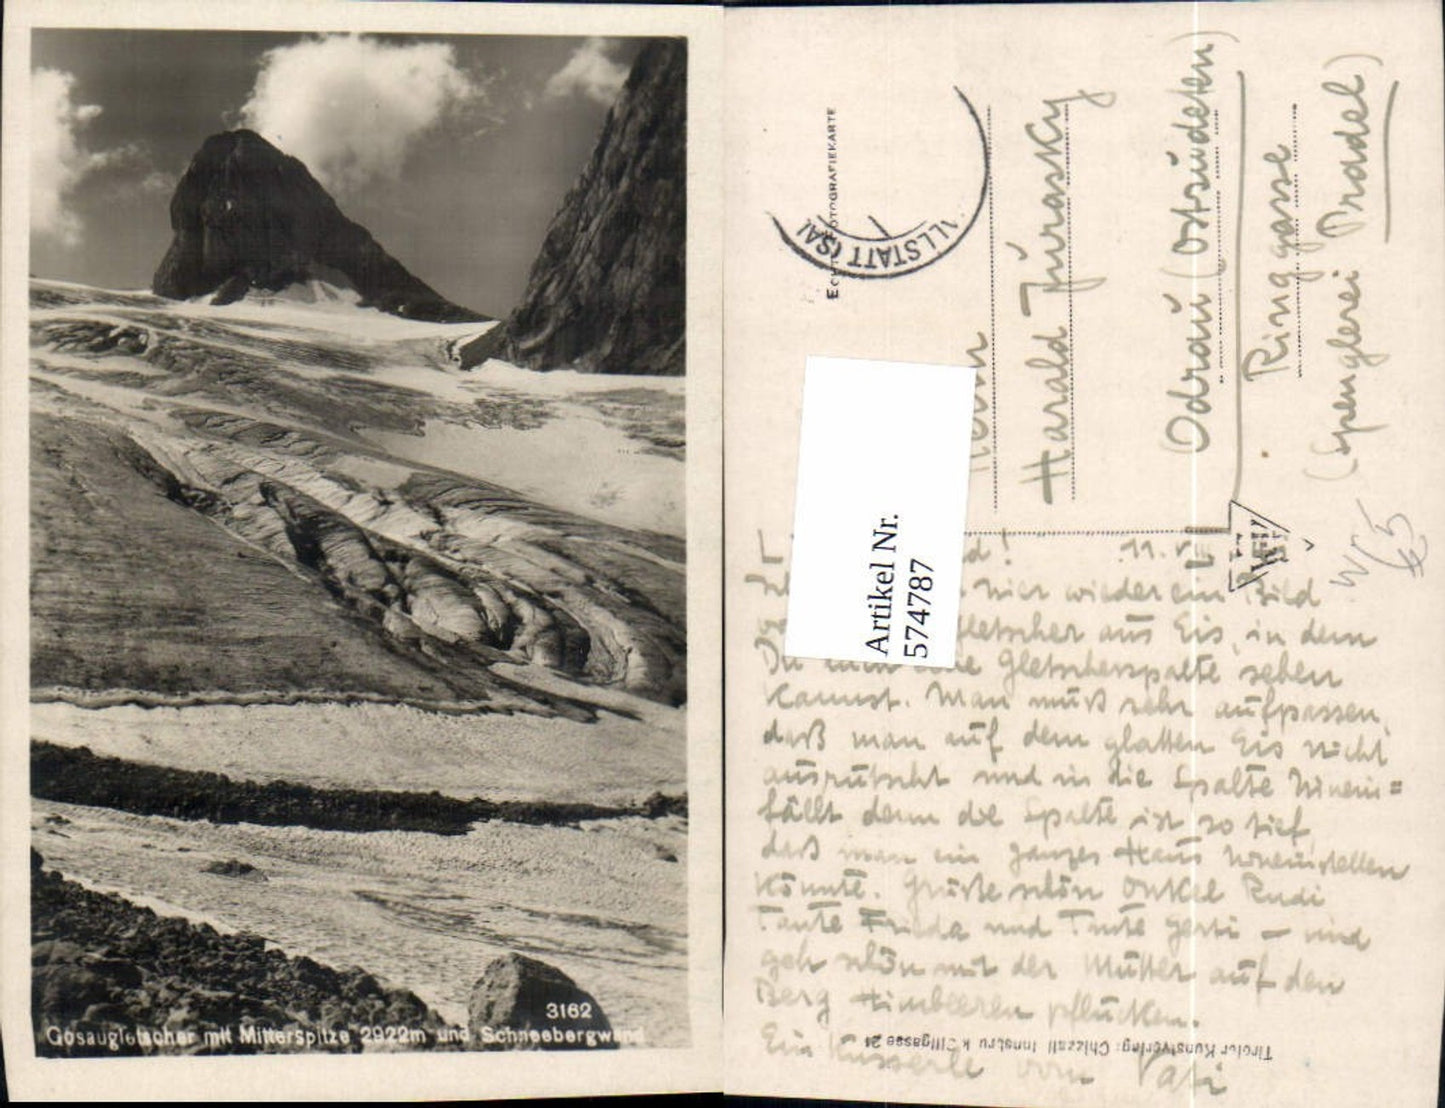 3162
Gosaugletscher mit Mitterspitze 2922m und Schneebergwand
ECHTE FOTOGRAFIEKARTE
ALLSTATT (SA
Harald Jurasky
Odrau (Ostsudeten)
Ringgasse
(Spenglerei Pradel)
Artikel Nr.
574787
11. VII
hier wieder ein Bild
Gletscher aus Eis, in dem
Du eine Gletscherspalte sehen
kannst. Man muß sehr aufpassen,
daß man auf dem glatten Eis nicht
ausrutscht und in die Spalte hinein=
fällt denn die Spalte ist so tief,
daß man ein ganzes Haus hineinstellen
könnte. Grüße schön Onkel Rudi
Tante Frieda und Tante Gerti – und
geh schön mit der Mutter auf den
Berg Himbeeren pflücken.
Ein Kusserle vom Vati
Tiroler Kunstverlag Chizzali Innsbruck